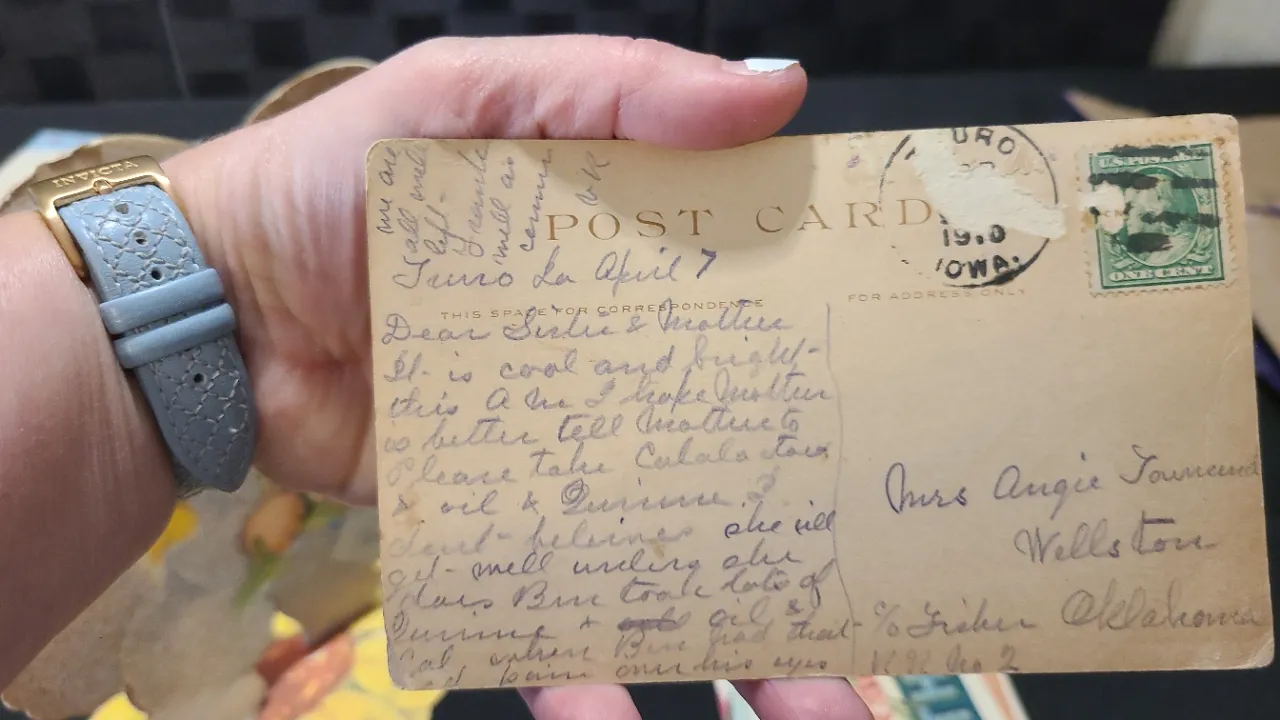 INVICTA
we are
all well
but
Grandma
well as
common
POST CARD
URO
1910
IOWA.
U.S. POSTAGE
ONE CENT
Truro Ia April 7
THIS SPACE FOR CORRESPONDENCE
FOR ADDRESS ONLY
Dear Sister & Mother
It is cool and bright
this A M I hope Mother
is better tell Mother to
Please take
& oil & Quinine I
dont believe she will
get well unless she
does Ben took lots of
Quinine & oil &
Cal, when Ben had that
pain over his eyes
Mrs Angie Townsend
Wellston
c/o Fisher Oklahoma
RR No 2